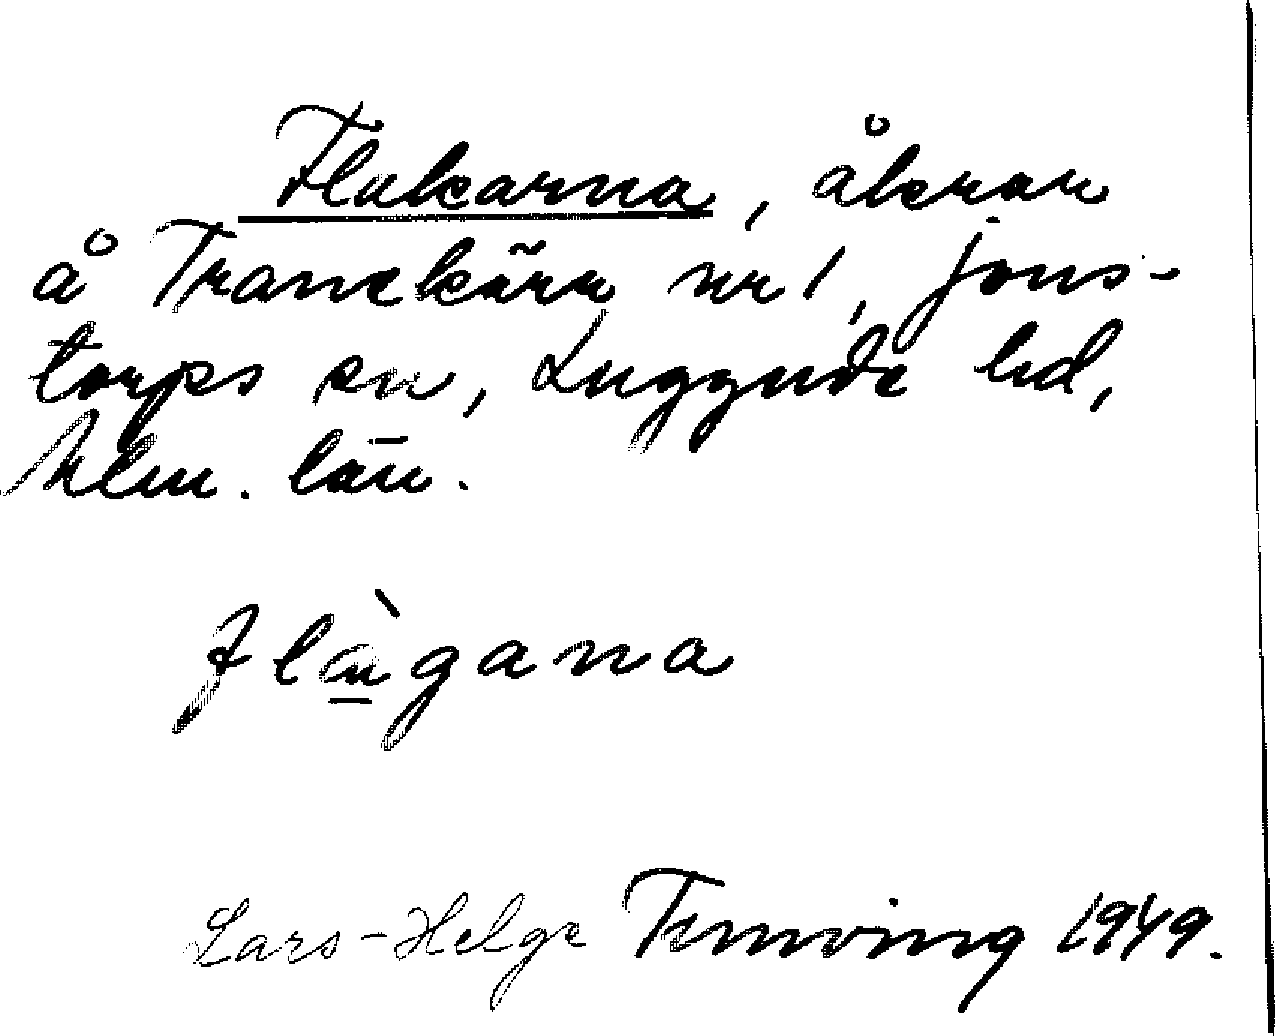 Flakarna, åkrar
å Tranekärr nr 1, Jons-
torps sn, Luggude hd,
Mlm. län.
flàgana
Lars-Helge 1949.